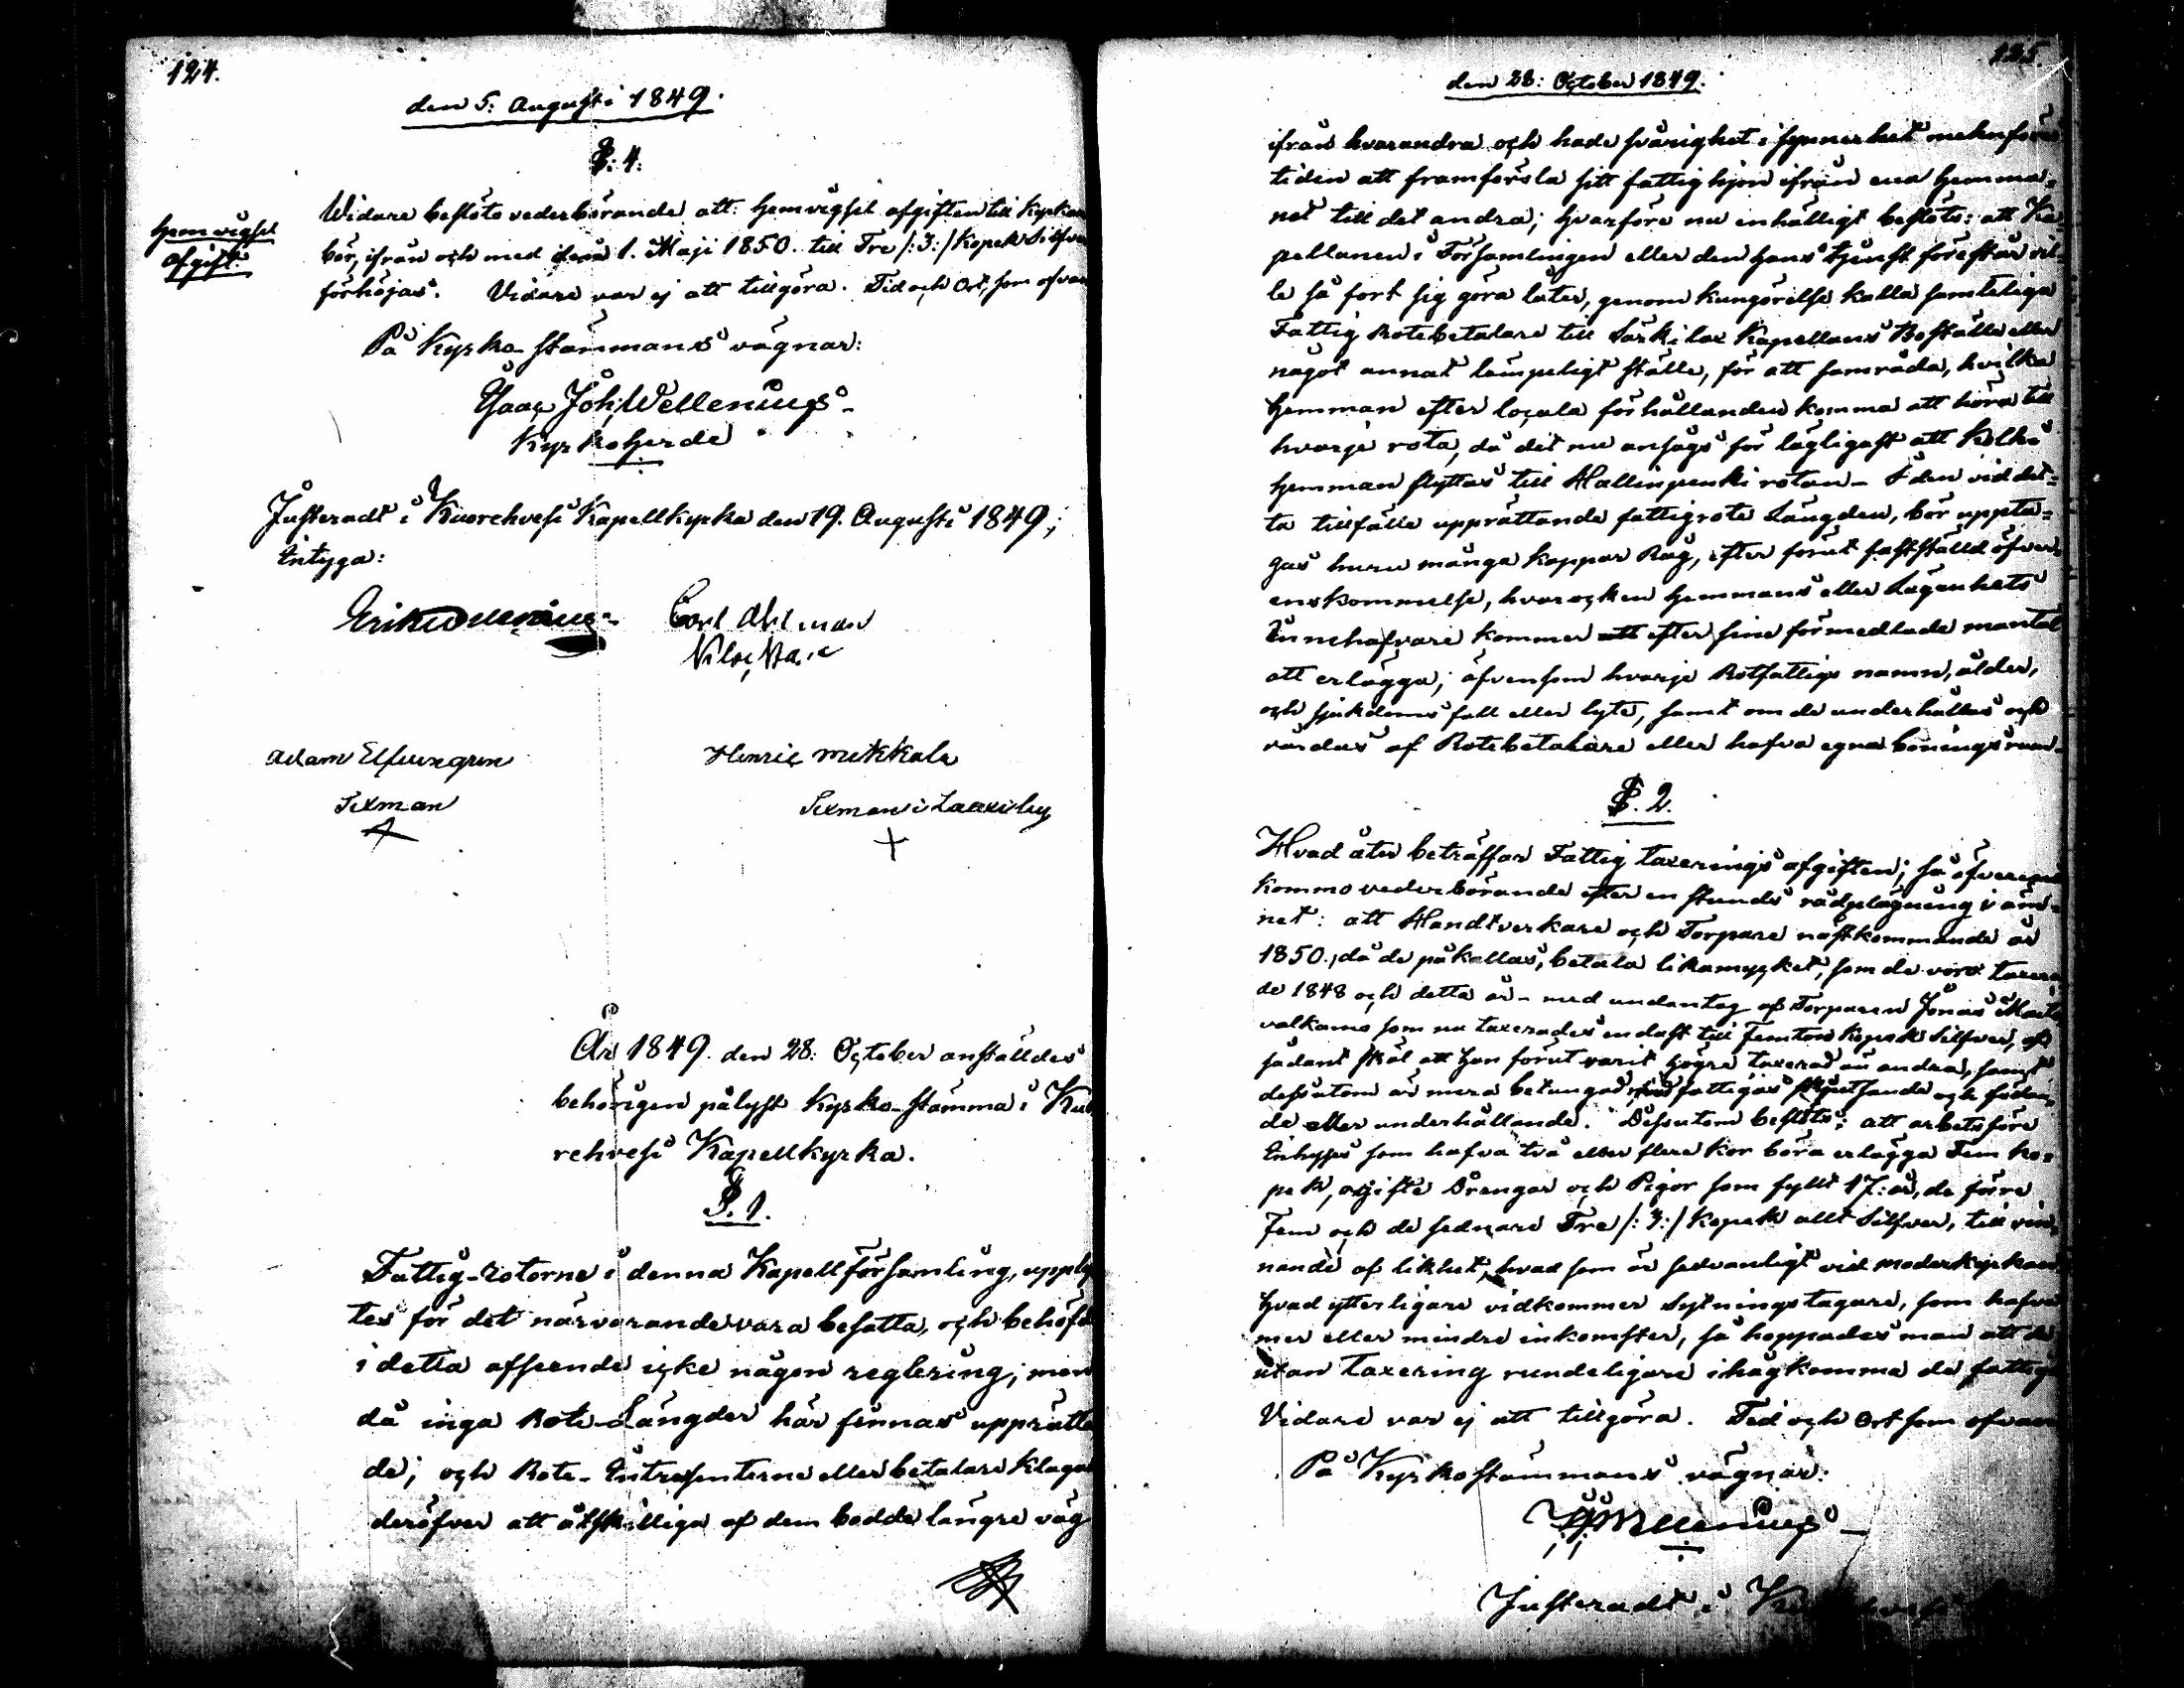 124.
den 5. Augusti 1849.
§. 4.
Hemvigsel
afgift.
Widare beslöts vederbörande att: hemvigsel afgiften till Kyrkan
bör, ifrån och med den 1. Maji 1850. till Tre /:3:/ Kopek Silfver
förhöjas. Vidare var ej att tillgöra. Tid och Ort, som ofvan
På Kyrko-stämmans vägnar:
Isaac Joh: Wellenius
Kyrkoherde
Justeradt i Kuorehvesi Kapellkyrka den 19. Augusti 1849;
Intyga:
Erik Wellenius Carl Ahlman
Adam Elfvengren Henric Mikkola
Sexman Sexman i
År 1849. den 28. October anställdes
behörigen pålyst Kyrko-stämma i Kuo
rehvesi Kapellkyrka.
§. 1.
Fattig-rotorne i denna Kapellförsamling, upplys
tes för det närvarande vara besatta, och behöfde
i detta afseende icke någon reglering; men
då inga Rote-Längder här finnas upprätta
de; och Rote-Intressenterne eller betalare klaga
deröfver att åtskilliga af dem bodde längre väg
125.
den 28. October 1849.
ifrån hvarandra och hade svårighet i synnerhet menföres
tiden att framforsla sitt fattighjon ifrån ena hemma-
net till det andra; hvarföre nu enhälligt beslöts: att Ka-
pellanen i Församlingen eller den hans tjenst förestår vil-
le så fort sig göra låter, genom kungörelse kalla samteliga
Fattig Rotebetalare till Särkilax Kapellans Boställe eller
något annat lämpeligt ställe, för att samråda, hvilka
Hemman efter locala förhållanden komma att höra till
hvarje rota, då det nu ansågs för lägligast att Kolho
hemman flyttas till Hallinpenki rotan - I den vid det-
ta tillfälle upprättande fattigrote Längden, bör uppta-
gas huru många kappar Råg, efter förut fastställd öfver-
enskommelse, hvar och en Hemmans eller Lägenhets
Innehafvare kommer att efter sine förmedlade mantal
att erlägga; äfvensom hvarje Rotfattigs namn, ålder,
och sjukdoms fall eller lyte, samt om de underhållas och
vårdas af Rotebetalare eller hafva egna boningsrum.
§. 2.
Hvad åter beträffar Fattig taxerings afgiften; så öfverens
kommo vederbörande efter en stunds rådplägning i äm-
net: att Handtverkare och Torpare nästkommande år
1850., då de påkallas, betala likamycket, som de voro taxera
de 1848 och detta år - med undantag af Torparen Jonas
som nu taxerades endast till Femton Kopek Silfver, af
sådant skäl att han förut varit högre taxerad än andra, samt
dessutom är mera betungad med fattigas skjutsande och födan-
de eller underhållande. Dessutom beslöts: att arbetsföre
Inhyses som hafva två eller flere kor böra erlägga Fem ko-
pek, ogifte Drengar och Pigor som fyllt 17: år, de förre
Fem och de sednare Tre /:3:/ Kopek allt Silfver, till vin-
nande af likhet, hvad som är sedvanligt vid moderkyrkan
Hvad ytterligare vidkommer Sytningstagare, som hafva
mer eller mindre inkomster, så hoppades man att de
utan taxering rundeligare ihågkomma de fattiga
Vidare var ej att tillgöra. Tid och Ort som ofvan
På Kyrkostämmans vägnar:
Wellenius
Justeradt i